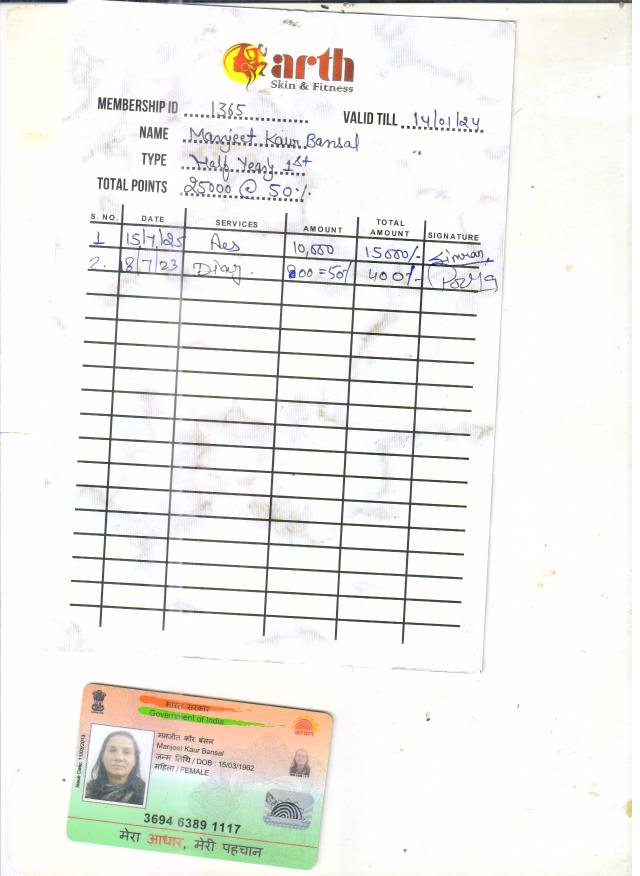 arth
Skin & Fitness
MEMBERSHIP ID 1365
VALID TILL 14/01/24
NAME Manjeet Kaur Bansal
TYPE Half Yearly 1st
TOTAL POINTS 25000 @ 50%
S. NO. DATE SERVICES AMOUNT TOTAL AMOUNT SIGNATURE
1 15/7/23 Aes 10,000 15000/- Simran
2. 8/7/23 800=50% 400/-
भारत सरकार
Government of India
आधार
Issue Date: 11/03/2013
मनजीत कौर बंसल
Manjeet Kaur Bansal
जन्म तिथि / DOB : 15/03/1962
महिला / FEMALE
3694 6389 1117
मेरा आधार, मेरी पहचान